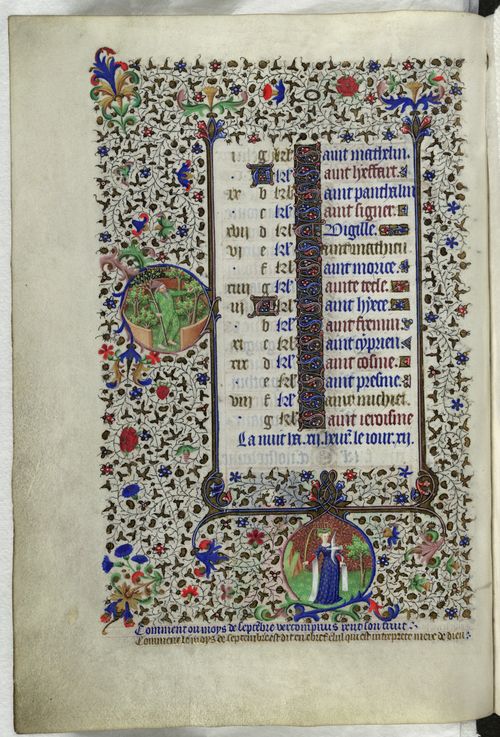 g kl Saint mathelin.
A kl Saint heffart.
ix b kl Saint panthalin
c kl Saint signer
xvii d kl Vigille.
vi e kl Saint mathieu
f kl Saint morice.
xiiii g kl Sainte tecle.
iii A kl Saint lyece.
b kl Saint fremin.
xi c kl Saint cyprien
xix d kl Saint cosme.
e kl Saint presme.
viii f kl Saint michiel.
g kl Saint ieroisme
La nuit ha. xii. heur le iour. xii.
Comment ou moys de septēbre vertompnus rent son fruit
Comment le moys de septembre est dit en ebref elul qui est interprete mere de dieu